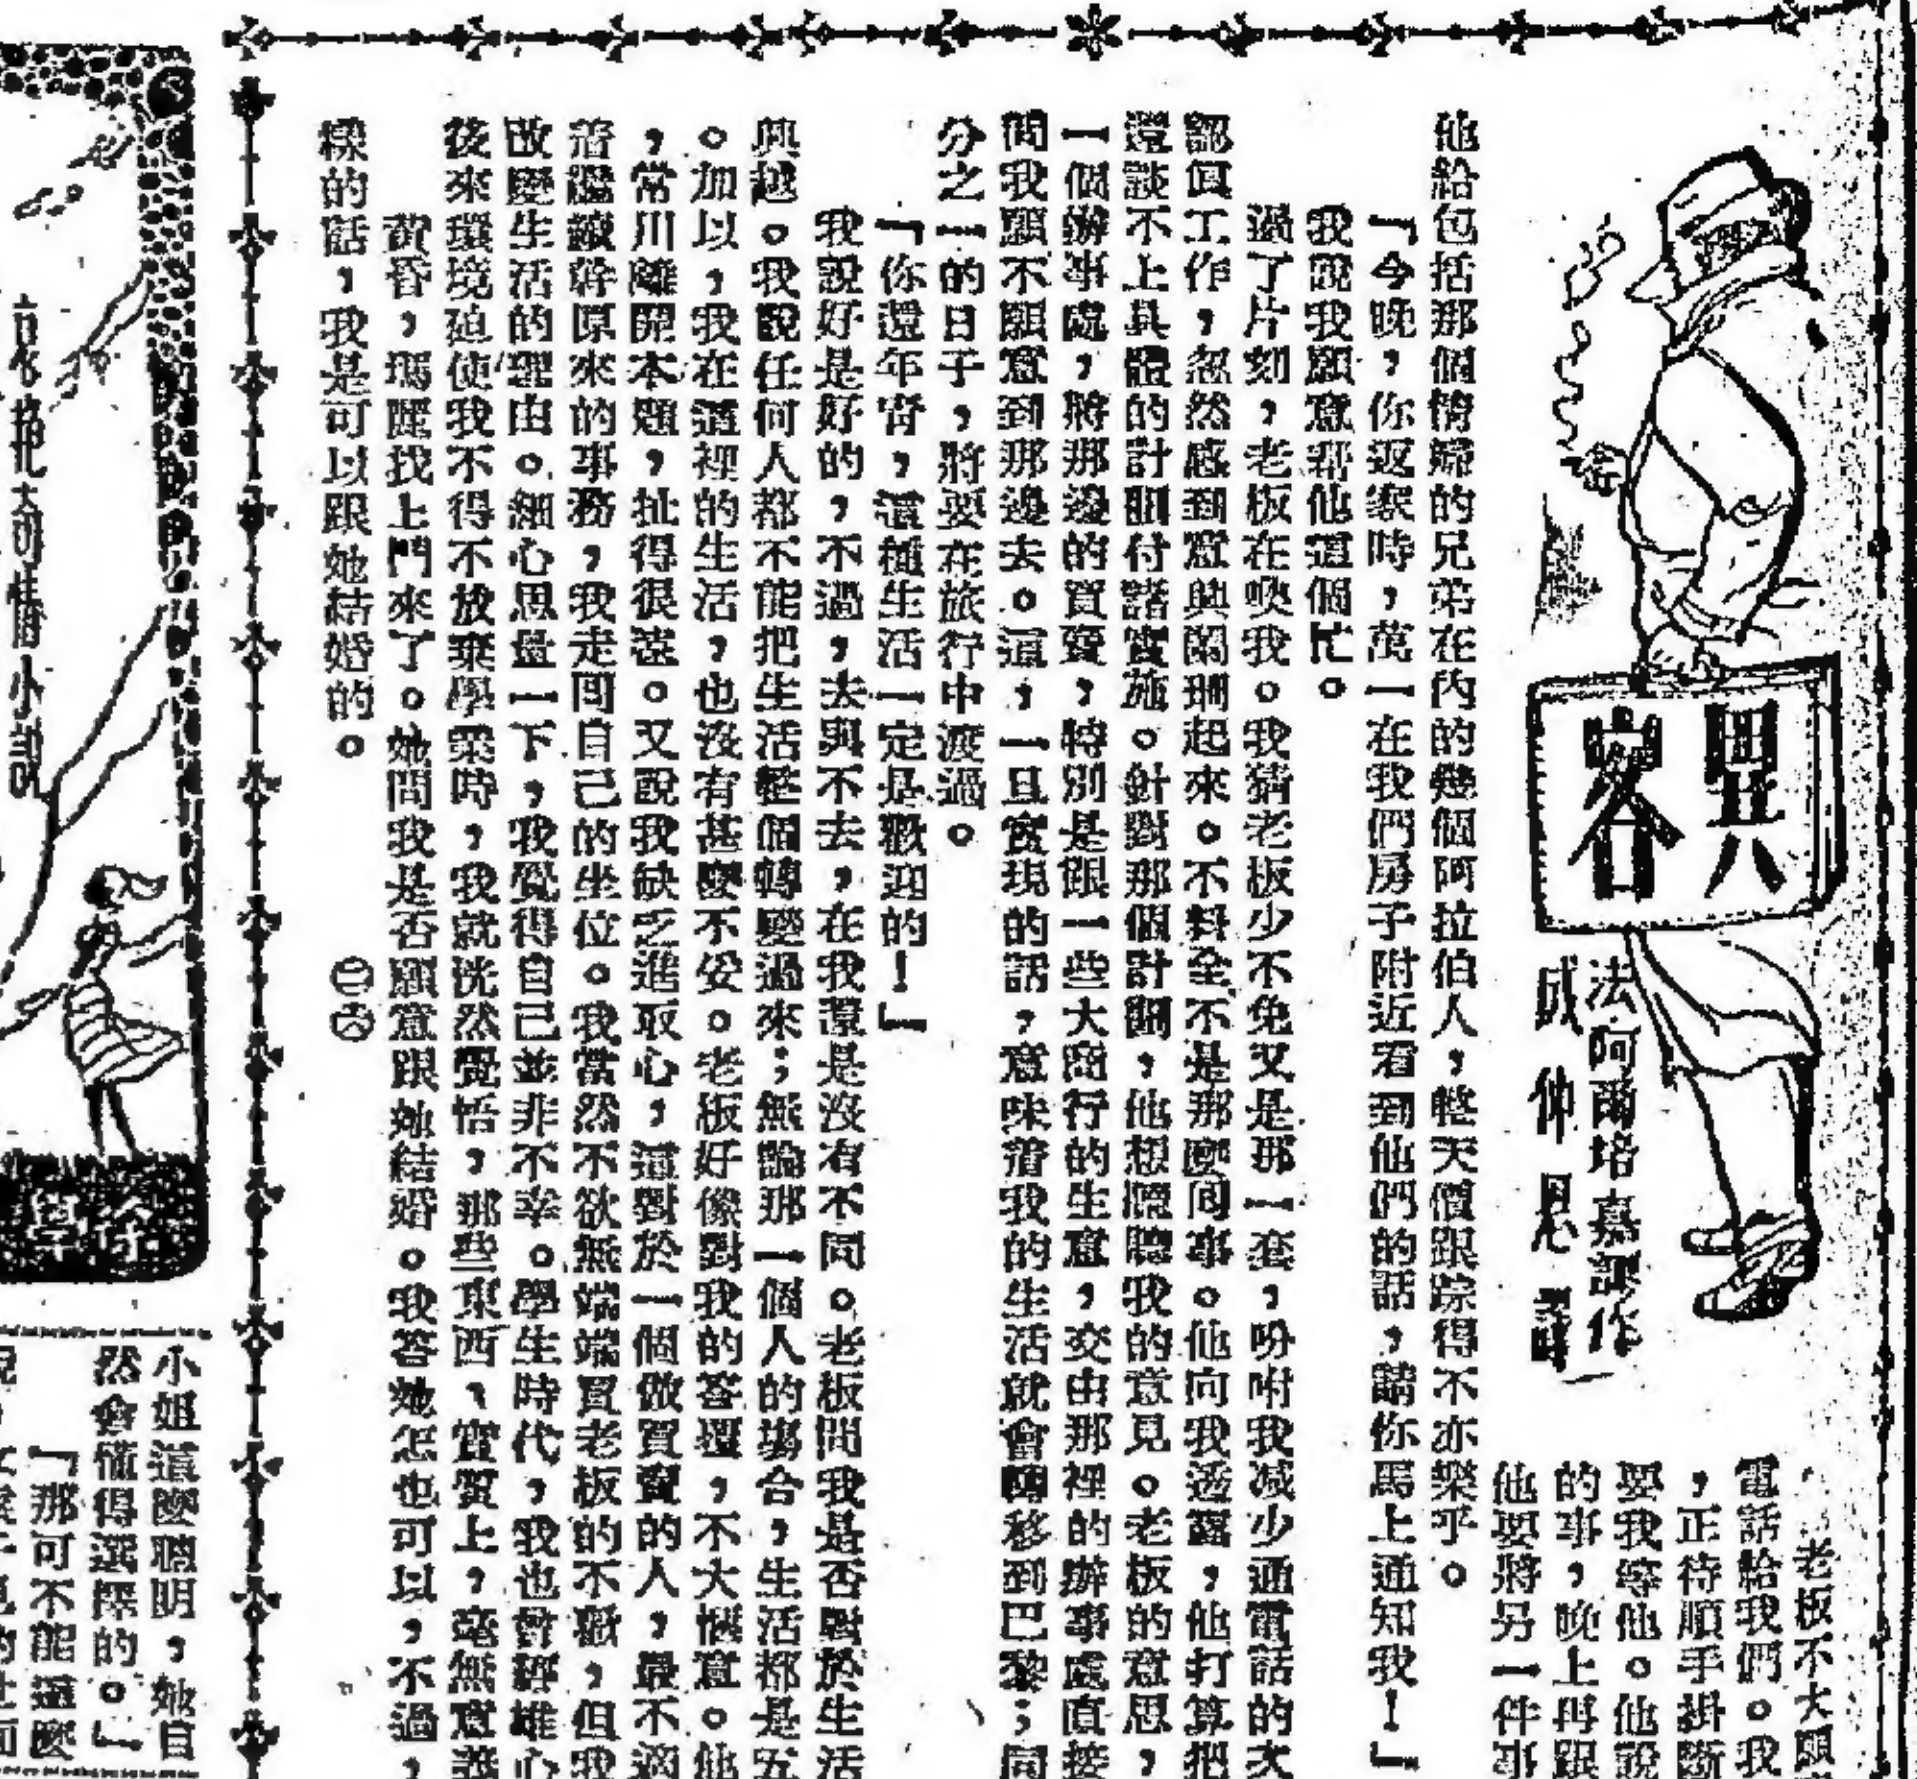 異客
法・阿爾培嘉謀作
成仲恩譯
老板不大願
電話給我們。我
，正待順手掛斷
要我等他。他說
的事，晚上再跟
他要將另一件事
他給包括那個情婦的兄弟在內的幾個阿拉伯人，整天價跟踪得不亦樂乎。
「今晚，你返家時，萬一在我們房子附近看到他們的話，請你馬上通知我！」
我說我願意幫他這個忙。
過了片刻，老板在喚我。我猜老板少不免又是那一套，吩咐我減少通電話的次
認眞工作，忽然感到意興闌珊起來。不料全不是那麼同事。他向我透露，他打算把
還談不上具體的計劃付諸實施。針對那個計劃，他想聽聽我的意見。老板的意思，
一個辦事處，將那邊的買賣，特別是跟一些大商行的生意，交由那裡的辦事處直接
問我願不願意到那邊去。這，一旦實現的話，意味着我的生活就會轉移到巴黎；同
分之一的日子，將要在旅行中渡過。
「你還年青，這種生活一定是歡迎的！」
我說好是好的，不過，去與不去，在我還是沒有不同。老板問我是否對於生活
興越。我說任何人都不能把生活整個轉變過來；無論那一個人的場合，生活都是五
。加以，我在這裡的生活，也沒有甚麼不妥。老板好像對我的答覆，不大愜意。他
，常川離開本題，扯得很遠。又說我缺乏進取心，這對於一個做買賣的人，最不適
着繼續幹原來的事務，我走囘自己的坐位。我當然不欲無端端買老板的不歡，但我
改變生活的理由。細心思量一下，我覺得自己並非不幸。學生時代，我也曾經雄心
後來環境迫使我不得不放棄學業時，我就恍然覺悟，那些東西，實質上，毫無意義
黃昏，瑪麗找上門來了。她問我是否願意跟她結婚。我答她怎也可以，不過，
樣的話，我是可以跟她結婚的。
小姐這麼聰明，她自
然會懂得選擇的。」
「那可不能這麼